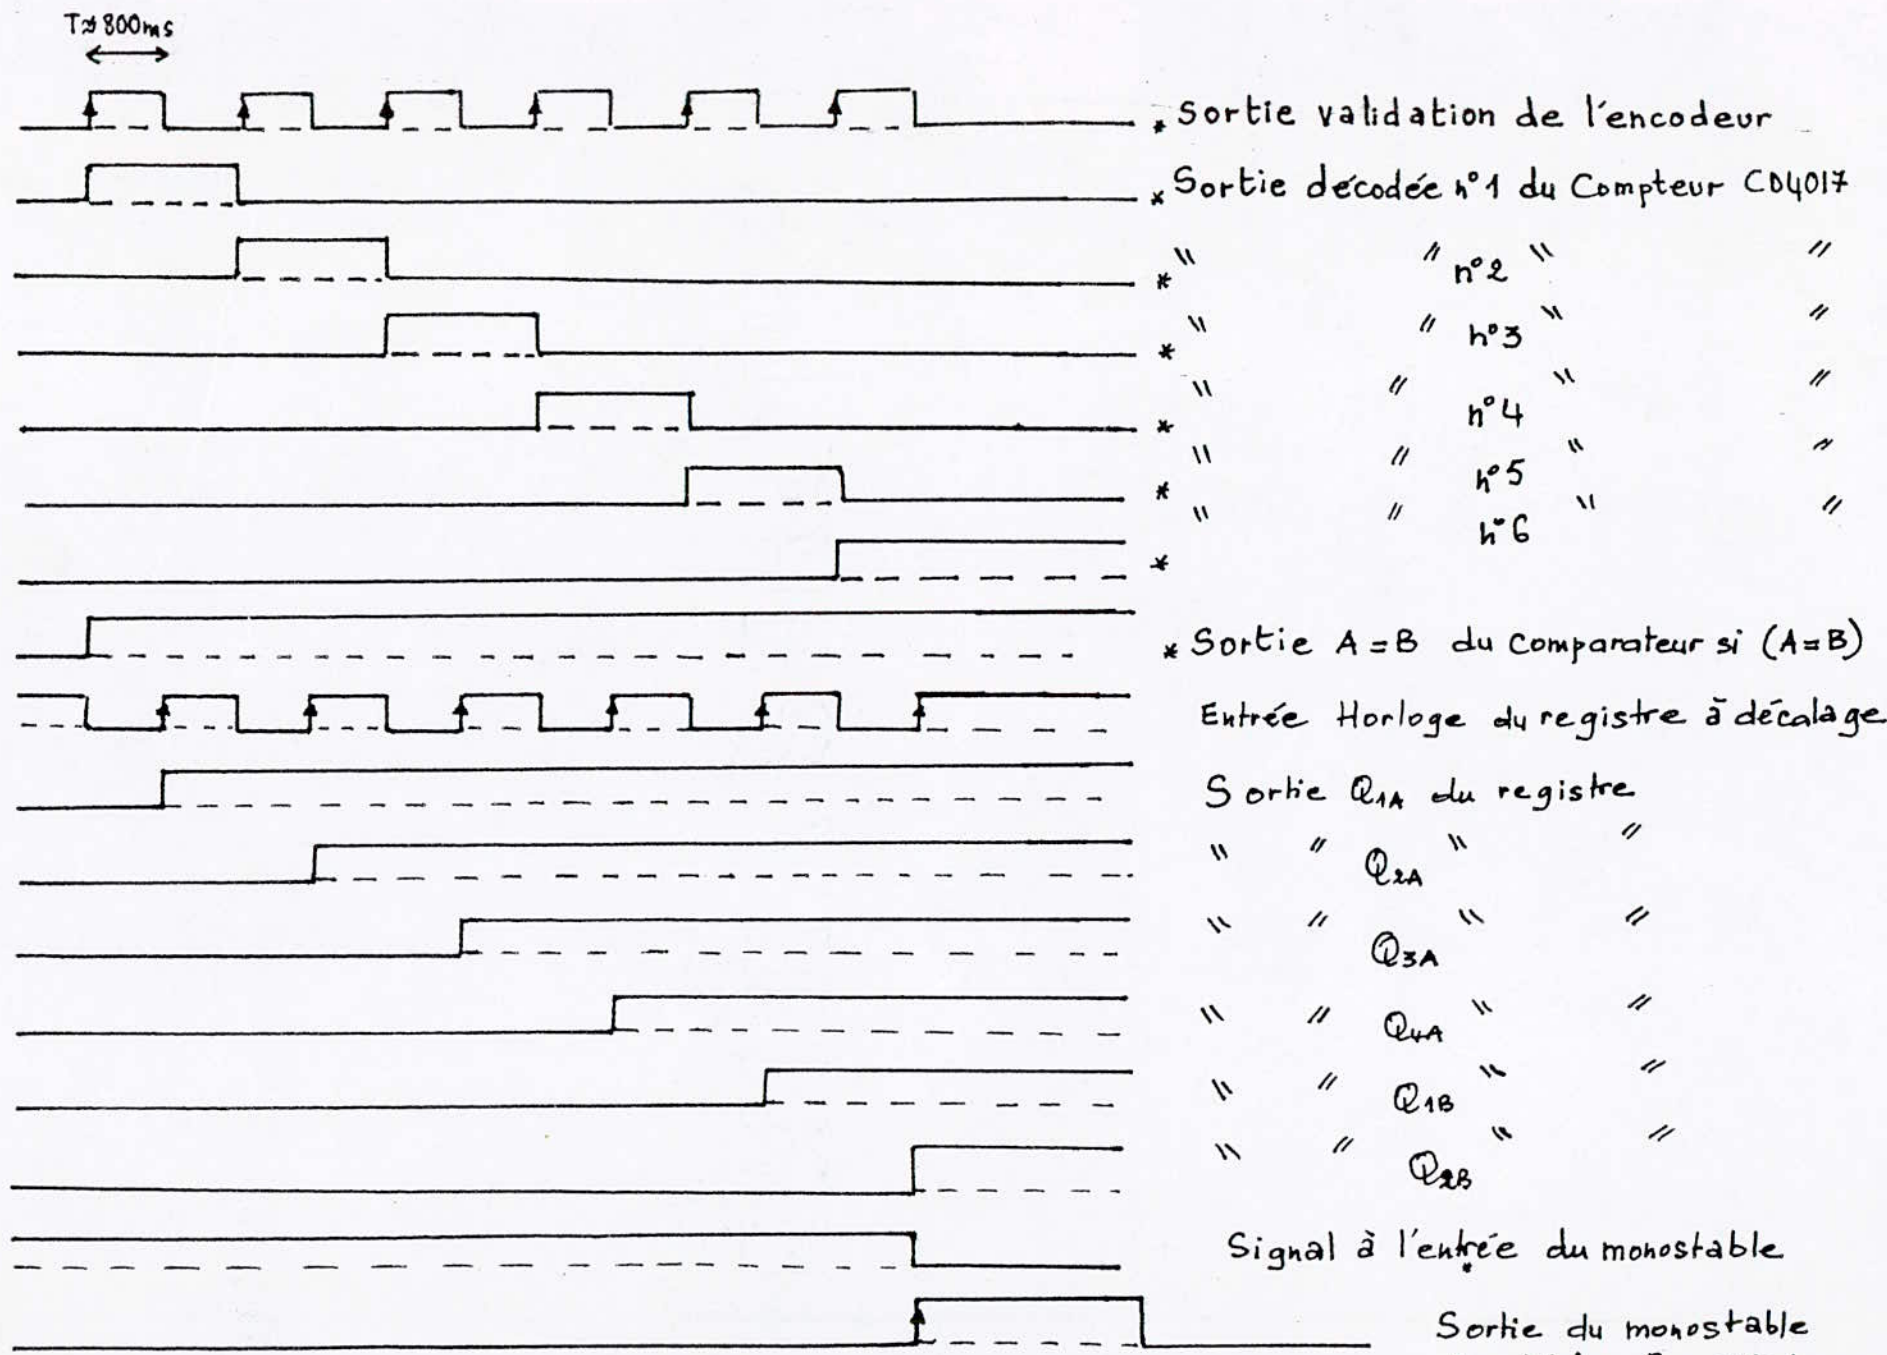 T≈800ms
* Sortie validation de l'encodeur
* Sortie décodée n°1 du Compteur CD4017
* " " n°2 " "
* " " n°3 " "
* " " n°4 " "
* " " n°5 " "
* " " n°6 " "
* Sortie A=B du Comparateur si (A=B)
Entrée Horloge du registre à décalage
Sortie Q1A du registre
" " Q2A " "
" " Q3A " "
" " Q4A " "
" " Q1B " "
" " Q2B " "
Signal à l'entrée du monostable
Sortie du monostable